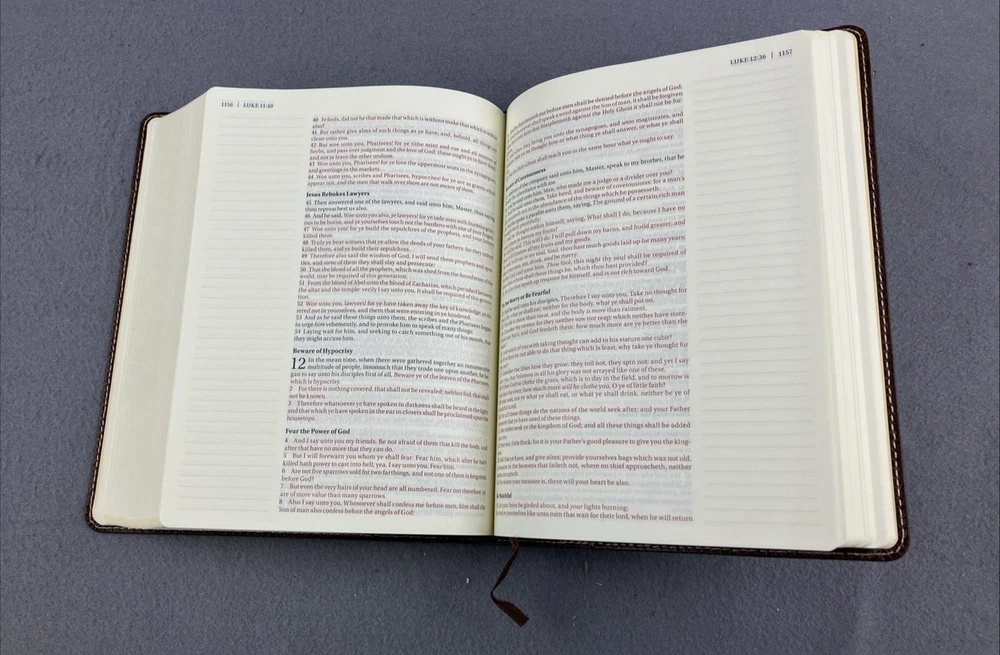 1156 | LUKE 11:40
40 Ye fools, did not he that made that which is without make that which is
also?
41 But rather give alms of such things as ye have; and, behold, all things
clean unto you.
42 But woe unto you, Pharisees! for ye tithe mint and rue and all manner
herbs, and pass over judgment and the love of God: these ought ye
and not to leave the other undone.
43 Woe unto you, Pharisees! for ye love the uppermost seats in the
and greetings in the markets.
44 Woe unto you, scribes and Pharisees, hypocrites! for ye are as graves
appear not, and the men that walk over them are not aware of them.
Jesus Rebukes Lawyers
45 Then answered one of the lawyers, and said unto him, Master, thus
thou reproachest us also.
46 And he said, Woe unto you also, ye lawyers! for ye lade men with burdens
ous to be borne, and ye yourselves touch not the burdens with one of your
47 Woe unto you! for ye build the sepulchres of the prophets, and your
killed them.
48 Truly ye bear witness that ye allow the deeds of your fathers: for they
killed them, and ye build their sepulchres.
49 Therefore also said the wisdom of God, I will send them prophets and
tles, and some of them they shall slay and persecute:
50 That the blood of all the prophets, which was shed from the foundation
world, may be required of this generation;
51 From the blood of Abel unto the blood of Zacharias, which perished
the altar and the temple: verily I say unto you, It shall be required of this
tion.
52 Woe unto you, lawyers! for ye have taken away the key of knowledge: ye
tered not in yourselves, and them that were entering in ye hindered.
53 And as he said these things unto them, the scribes and the Pharisees began
to urge him vehemently, and to provoke him to speak of many things:
54 Laying wait for him, and seeking to catch something out of his mouth, that
they might accuse him.
Beware of Hypocrisy
12 In the mean time, when there were gathered together an innumerable
multitude of people, insomuch that they trode one upon another, he
gan to say unto his disciples first of all, Beware ye of the leaven of the Pharisees,
which is hypocrisy.
2 For there is nothing covered, that shall not be revealed; neither hid, that shall
not be known.
3 Therefore whatsoever ye have spoken in darkness shall be heard in the light;
and that which ye have spoken in the ear in closets shall be proclaimed upon the
housetops.
Fear the Power of God
4 And I say unto you my friends, Be not afraid of them that kill the body, and
after that have no more that they can do.
5 But I will forewarn you whom ye shall fear: Fear him, which after he hath
killed hath power to cast into hell; yea, I say unto you, Fear him.
6 Are not five sparrows sold for two farthings, and not one of them is forgotten
before God?
7 But even the very hairs of your head are all numbered. Fear not therefore: ye
are of more value than many sparrows.
8 Also I say unto you, Whosoever shall confess me before men, him shall the
Son of man also confess before the angels of God:
LUKE 12:36 | 1157
me before men shall be denied before the angels of God.
shall speak a word against the Son of man, it shall be forgiven
that blasphemeth against the Holy Ghost it shall not be for-
they bring you unto the synagogues, and unto magistrates, and
thought how or what thing ye shall answer, or what ye shall
Ghost shall teach you in the same hour what ye ought to say.
Covetousness
of the company said unto him, Master, speak to my brother, that he
inheritance with me.
said unto him, Man, who made me a judge or a divider over you?
said unto them, Take heed, and beware of covetousness: for a man's
not in the abundance of the things which he possesseth.
a parable unto them, saying, The ground of a certain rich man
thought within himself, saying, What shall I do, because I have no
bestow my fruits?
said, This will I do: I will pull down my barns, and build greater; and
all my fruits and my goods.
say to my soul, Soul, thou hast much goods laid up for many years;
eat, drink, and be merry.
said unto him, Thou fool, this night thy soul shall be required of
whose shall those things be, which thou hast provided?
layeth up treasure for himself, and is not rich toward God.
Worry or Be Fearful
said unto his disciples, Therefore I say unto you, Take no thought for
ye shall eat; neither for the body, what ye shall put on.
is more than meat, and the body is more than raiment.
the ravens: for they neither sow nor reap; which neither have store-
barn; and God feedeth them: how much more are ye better than the
which of you with taking thought can add to his stature one cubit?
be not able to do that thing which is least, why take ye thought for
the lilies how they grow: they toil not, they spin not; and yet I say
that Solomon in all his glory was not arrayed like one of these.
God so clothe the grass, which is to day in the field, and to morrow is
the oven; how much more will he clothe you, O ye of little faith?
seek not ye what ye shall eat, or what ye shall drink, neither be ye of
mind.
all these things do the nations of the world seek after: and your Father
that ye have need of these things.
rather seek ye the kingdom of God; and all these things shall be added
you.
not, little flock; for it is your Father's good pleasure to give you the king-
that ye have, and give alms; provide yourselves bags which wax not old,
in the heavens that faileth not, where no thief approacheth, neither
corrupteth.
where your treasure is, there will your heart be also.
Faithful
your loins be girded about, and your lights burning;
ye yourselves like unto men that wait for their lord, when he will return